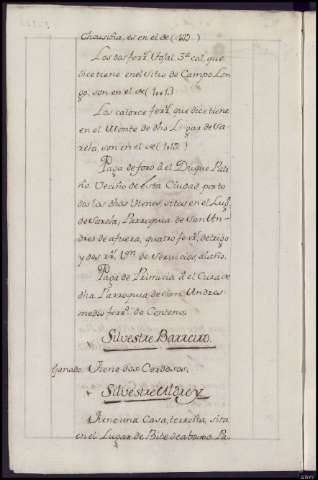 Chousiña, es en el de (1410.)
Los dos ferr.s Vital 3.ª cal. que
dice tiene en el Sitio de Campo Lon-
go, son en el de (1413)
Los catorce ferr.s que dice tiene
en el Monte de dho Lugar de Sa-
rela, son en el de (1410)
Paga de foro â el Duque Pati
ño Vecino de esta Ciudad por to
dos los dhos Vienes, sitos en el Lug.r
de Sarela, Parroquia de San An-
dres de afuera, quatro ferr.s de trigo
y dos rr.s V.on de Servicios al año.
Paga de Primicia â el Cura de
dha Parroquia de San Andres
medio ferr.o de Centeno.
Silvestre Barreiro.
Ganado. Tiene dos Cerdosos.
Silvestre Aldrey
Tiene una Casa, terreña, sita
en el Lugar de Bite de abajo Pa